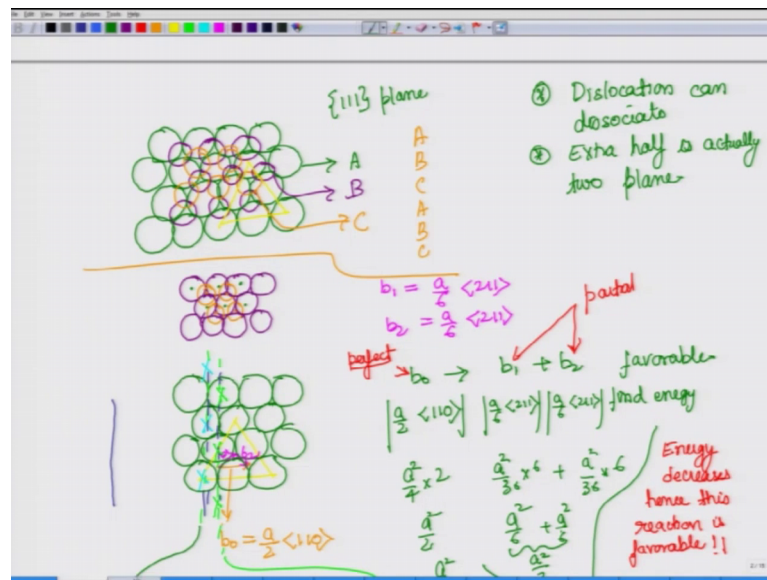 File Edit View Insert Actions Tools Help
{111} plane
A
B
C
A
B
C
A
B
C
⊛ Dislocation can
dissociate
⊛ Extra half is actually
two plane
b₁ = a/6 <211>
b₂ = a/6 <211>
partial
perfect
b₀ → b₁ + b₂ favorable
|a/2 <110>| |a/6 <211>| |a/6 <211>| find enegy
a²/4 x 2 a²/36 x 6 + a²/36 x 6
a²/2 a²/6 + a²/6
a² a²/3
Energy
decreases
hence this
reaction is
favorable !!
b₂
b₀ = a/2 <110>
2 / 15